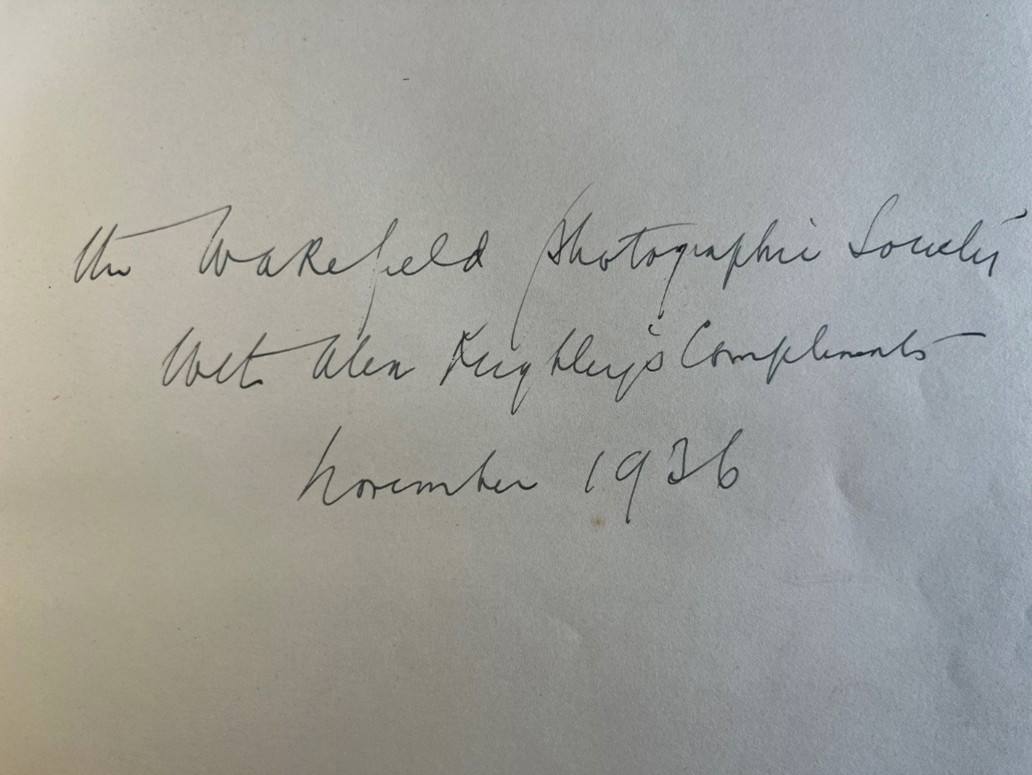 The Wakefield Photographic Society
With Alex Keighley's Compliments
November 1936